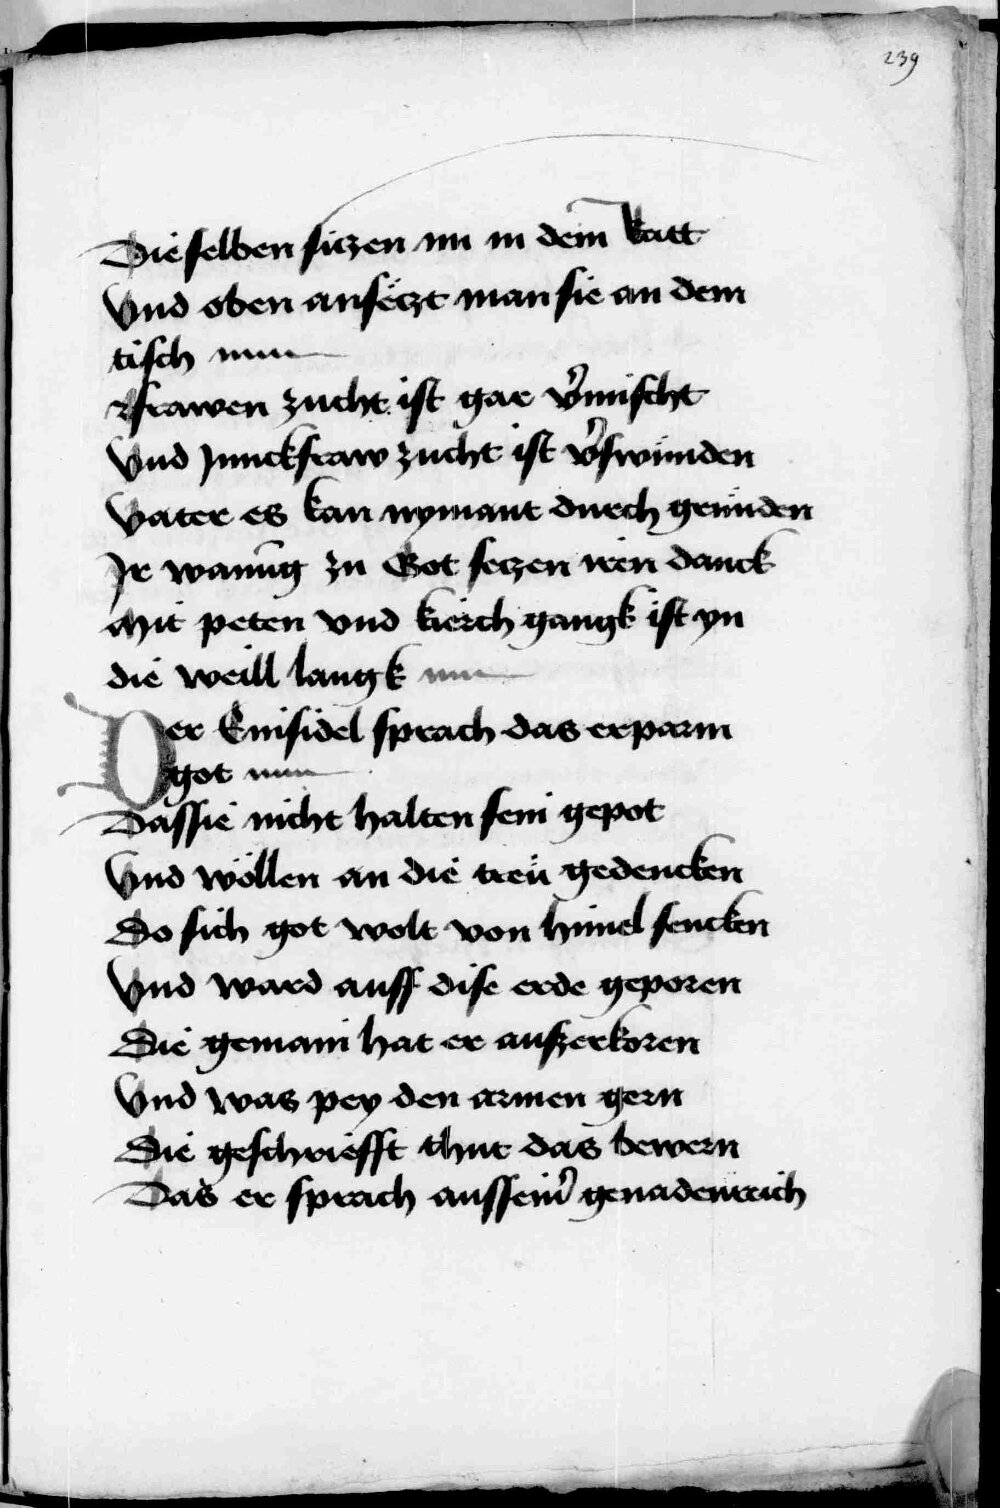 239
Die selben siczen nu in dem̄ Ratt
Vnd oben an séczt man sie an dem
tisch
Frawen zucht ist gar v̉mischt
Vnd Junckfraw zucht ist v̉swünden
Vater es kan nymant durch gründen
Ir wanūg zu Got seczen iren danck
Mit peten vnd kierch gangk ist yn
die weill langk
Der Einsidel sprach das erparm
got
Das sie nicht halten sein gepot
Vnd wöllen an die treü gedencken
Do sich got wolt von himel sencken
Vnd ward auff dise erde geporen
Die gemain hat er auszerkoren
Vnd was pey den armen gern
Die geschriefft thut das bewern
Das er sprach aus sein̉ genadenreich